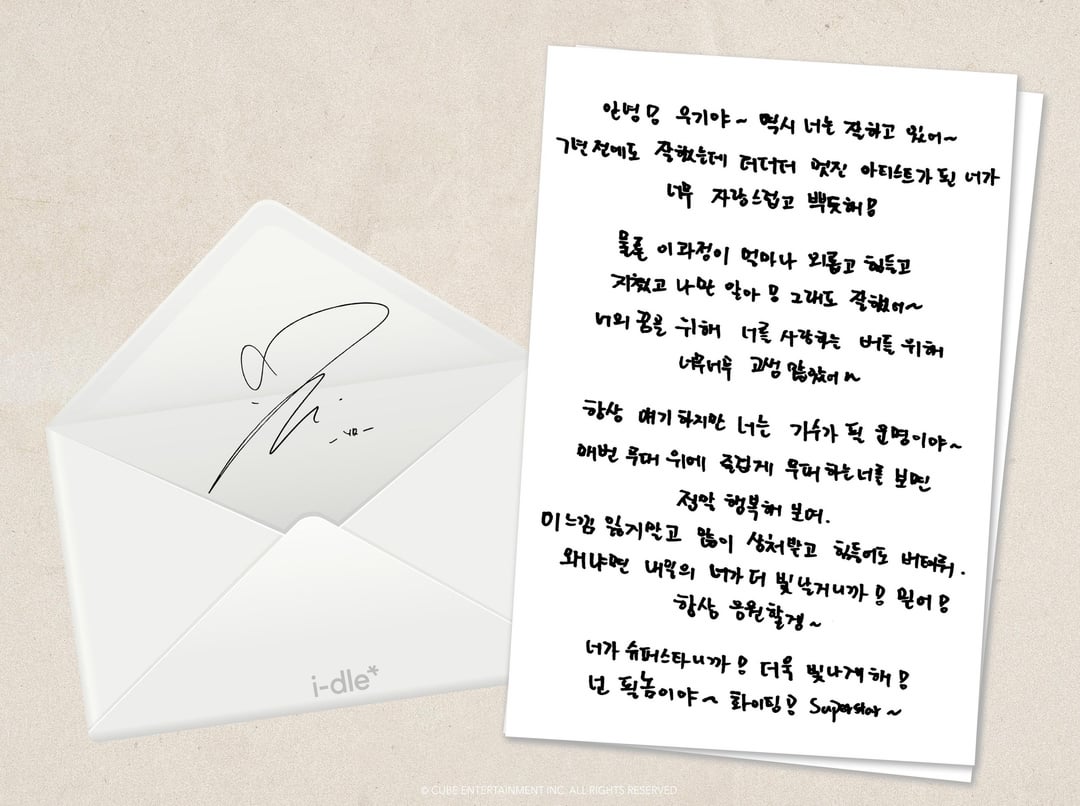 안녕! 우기야~ 역시 너는 잘하고 있어~
7년 전에도 잘했는데 더더더 멋진 아티스트가 된 너가
너무 자랑스럽고 뿌듯해!
물론 이 과정이 얼마나 외롭고 힘들고
지쳤고 나만 알아! 그래도 잘했어~
너의 꿈을 위해 너를 사랑하는 버들 위해
너무너무 고생 많았어
항상 얘기하지만 너는 가수가 될 운명이야~
매번 무대 위에 즐겁게 무대하는 너를 보면
정말 행복해 보여.
이 느낌 잃지말고 많이 상처받고 힘들어도 버텨줘.
왜냐면 내일의 너가 더 빛날거니까! 믿어!
항상 응원할겡~
너가 슈퍼스타니까! 더욱 빛나게 해!
넌 될놈이야~ 화이팅! Superstar~
i-dle*
© CUBE ENTERTAINMENT INC. ALL RIGHTS RESERVED